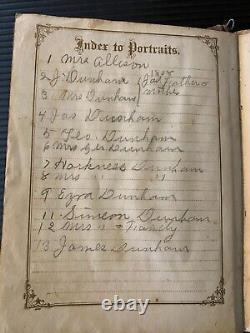 Index to Portraits.
1 Mrs Allison
2 J. Dunham
3 Mrs Dunham
Father
mother
4 Jas Dunham
5 Geo Dunham
6 Mrs Geo Dunham
7 Harkness Dunham
8 Mrs " "
9 Ezra Dunham
11 Simeon Dunham
12 Mrs " & Family
13 James Dunham